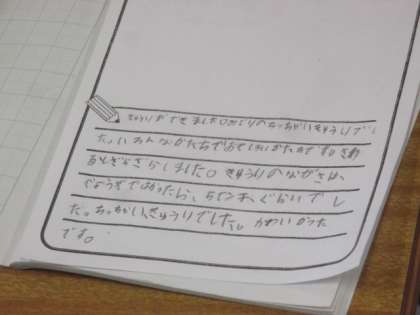 きゅうりができました。みどりのちっちゃいきゅうりでし
た。いろんなかたちでおもしろいかたちです。さわ
るとざらざらしました。きゅうりのながさは、
じょうぎではかったら、5センチぐらいでし
た。ちっちゃいきゅうりでした。かわいかった
です。